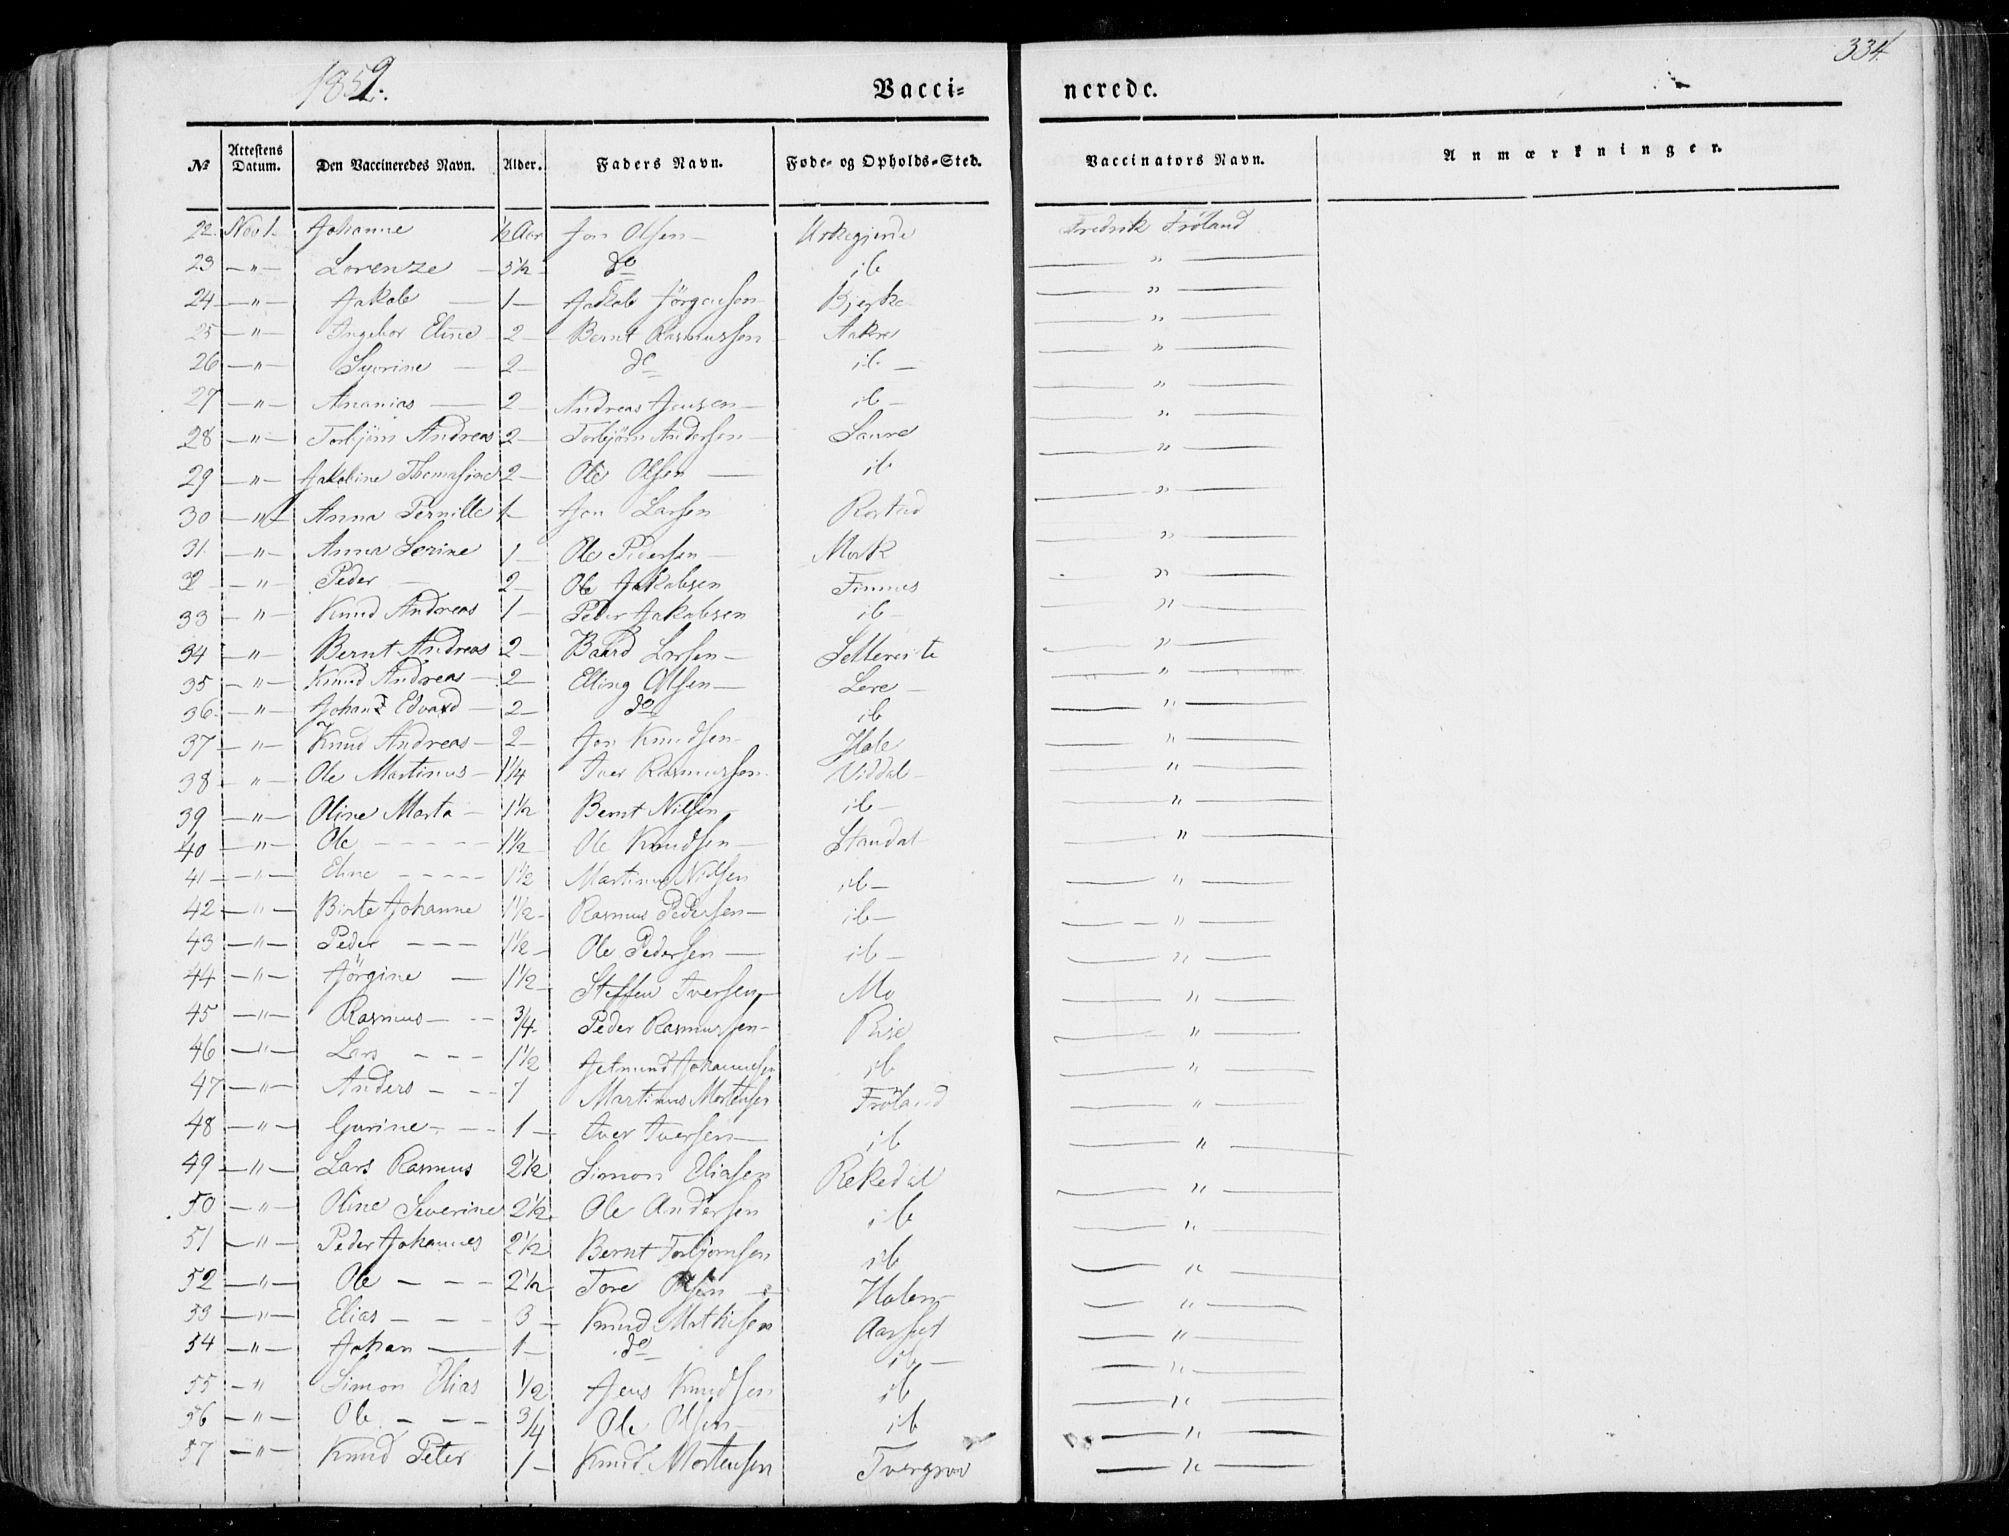 1852.
334.
Vacci- nerede.
№ Attestens Datum. Den Vaccineredes Navn. Alder. Faders Navn. Føde- og Opholds-Sted. Vaccinators Navn. Anmærkninger.
22 Nov 1. Johanne ½ Aar Jon Olsen — Urkegjerde Fredrik Fröland
23 — " — Lorenze — 3½ — do ib — " —
24 — " — Jakob — 1 — Jakob Jörgensen Bjerke — " —
25 — " — Ingebor Eline 2 — Bernt Rasmussen Aakre — " —
26 — " — Syvrine — 2 — do ib — — " —
27 — " — Ananias — 2 — Andreas Jensen — ib — — " —
28 — " — Torbjörn Andreas 2 — Torbjörn Andersen — Saure — " —
29 — " — Jakobine Thomasine 2 — Ole Olsen — ib — " —
30 — " — Anna Pernille 1 — Jon Larsen Rostad — " —
31. — " — Anna Serine 1 — Ole Pedersen — Mork — " —
32 — " — Peder — 2 — Ole Jakobsen Finnes — " —
33 — " — Knud Andreas 1 — Peder Jakobsen ib — — " —
34 — " — Bernt Andreas 2 — Baard Larsen — — " —
35 — " — Knud Andreas — 2 — Elling Olsen — — " —
36 — " — Johan Edvard — 2 — do ib — " —
37 — " — Knud Andreas — 2 — Jon Knudsen Hole — " —
38 — " — Ole Martinus — 1¼ Iver Rasmussen Viddal — — " —
39 — " — Oline Marta — 1½ Bernt Nilsen — ib — — " —
40 — " — Ole — — — 1½ Ole Knudsen — Standal — " —
41 — " — Eline — — — 1½ Martinus Nilsen ib — — " —
42 — " — Birte Johanne 1½ — Rasmus Pedersen — ib — — " —
43 — " — Peder — — — 1½ — Ole Pedersen — ib — — " —
44 — " — Jörgine — 1½ — Steffen Iversen — Mo — " —
45 — " — Rasmus — — ¾ — Peder Rasmussen — Rise — " —
46 — " — Lars — — — 1½ Jetmund Johannesen ib — " —
47 — " — Anders — — 1 Martinus Mortensen Fröland — " —
48 — " — Gurine — — 1 — Iver Iversen — ib — " —
49 — " — Lars Rasmus 2½ Simon Eliasen Rekedal — " —
50 — " — Oline Severine 2½ Ole Andersen ib — " —
51 — " — Peder Johannes 2½ Bernt Torbjörnsen ib — " —
52 — " — Ole — — — 2½ Tore Olsen — Holen — — " —
53 — " — Elias — — — 3 — Knud Mathisen Aarset — " —
54 — " — Johan — 1 — do ib — — " —
55 — " Simon Elias ½ Jens Knudsen ib — " —
56 — " — Ole — — — ¾ Ole Olsen — ib — " —
57 — " — Knud Peter 1 — Knud Mortensen — " —